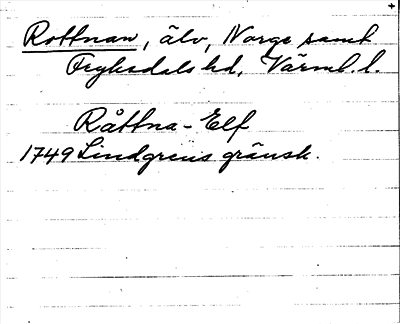 Rottnan, älv, Norge samt
Fryksdals hd, Värml. l.
Råttna-Elf
1749 Lindgrens gränsk.